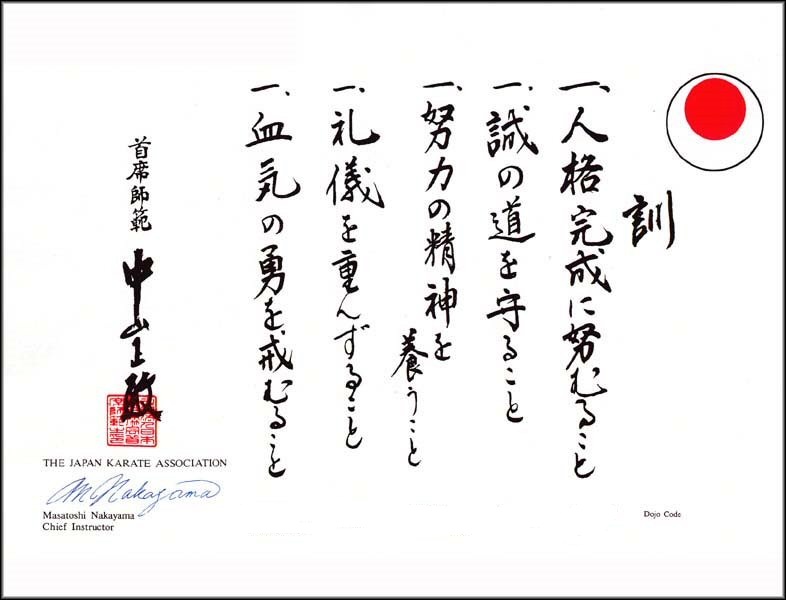 訓
一、人格完成に努むること
一、誠の道を守ること
一、努力の精神を養うこと
一、礼儀を重んずること
一、血気の勇を戒むること
首席師範
中山正敏
THE JAPAN KARATE ASSOCIATION
M. Nakayama
Masatoshi Nakayama
Chief Instructor
Dojo Code